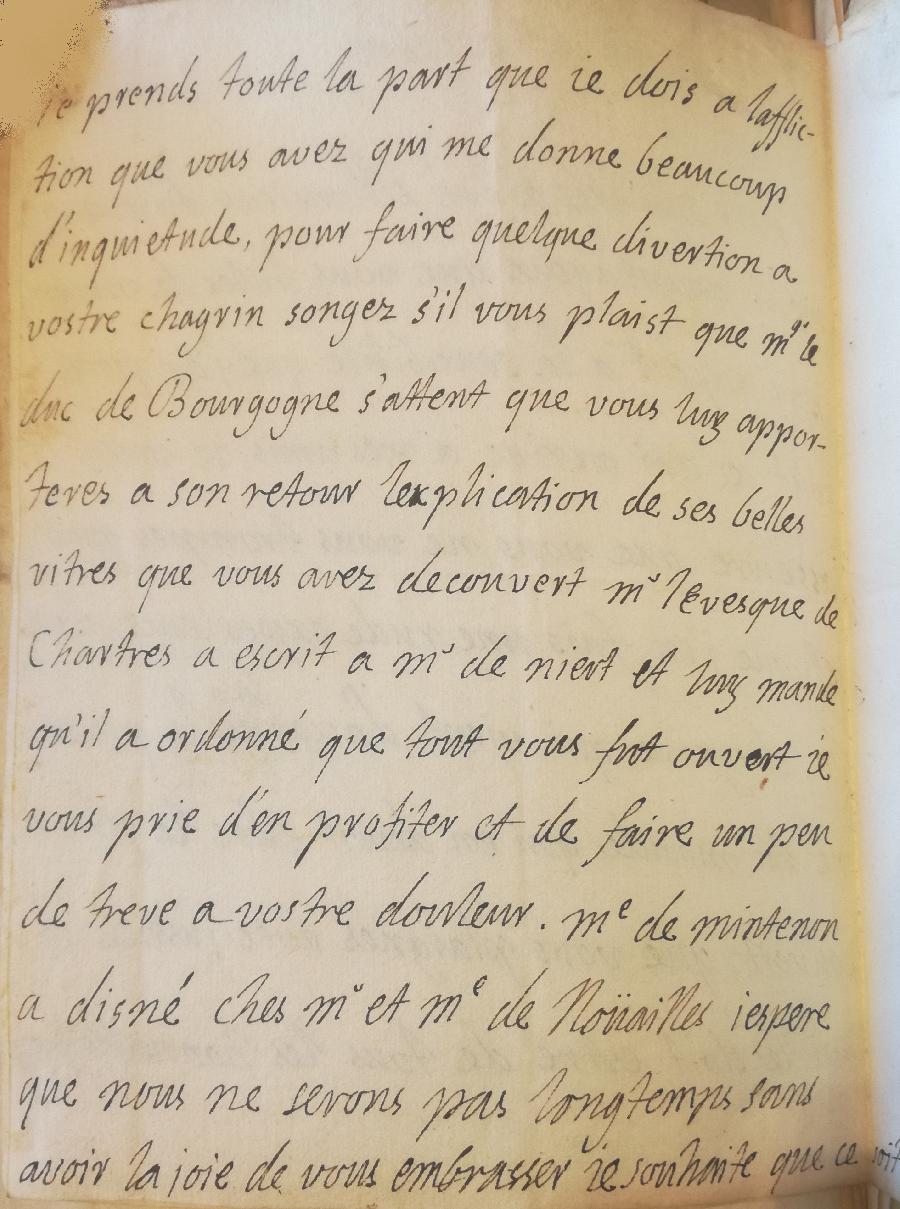 ie prends toute la part que ie dois a lafflic-
tion que vous avez qui me donne beaucoup
d'inquietude, pour faire quelque divertion a
vostre chagrin songez s'il vous plaist que mgr le
duc de Bourgogne s'attent que vous luy appor-
teres a son retour lexplication de ses belles
vitres que vous avez decouvert mr l'evesque de
Chartres a escrit a mr de niert et luy mande
qu'il a ordonné que tout vous fut ouvert ie
vous prie d'en profiter et de faire un peu
de treve a vostre douleur. me de mintenon
a disné ches mr et me de Noüailles iespere
que nous ne serons pas longtemps sans
avoir la joie de vous embrasser ie souhaite que ce soit